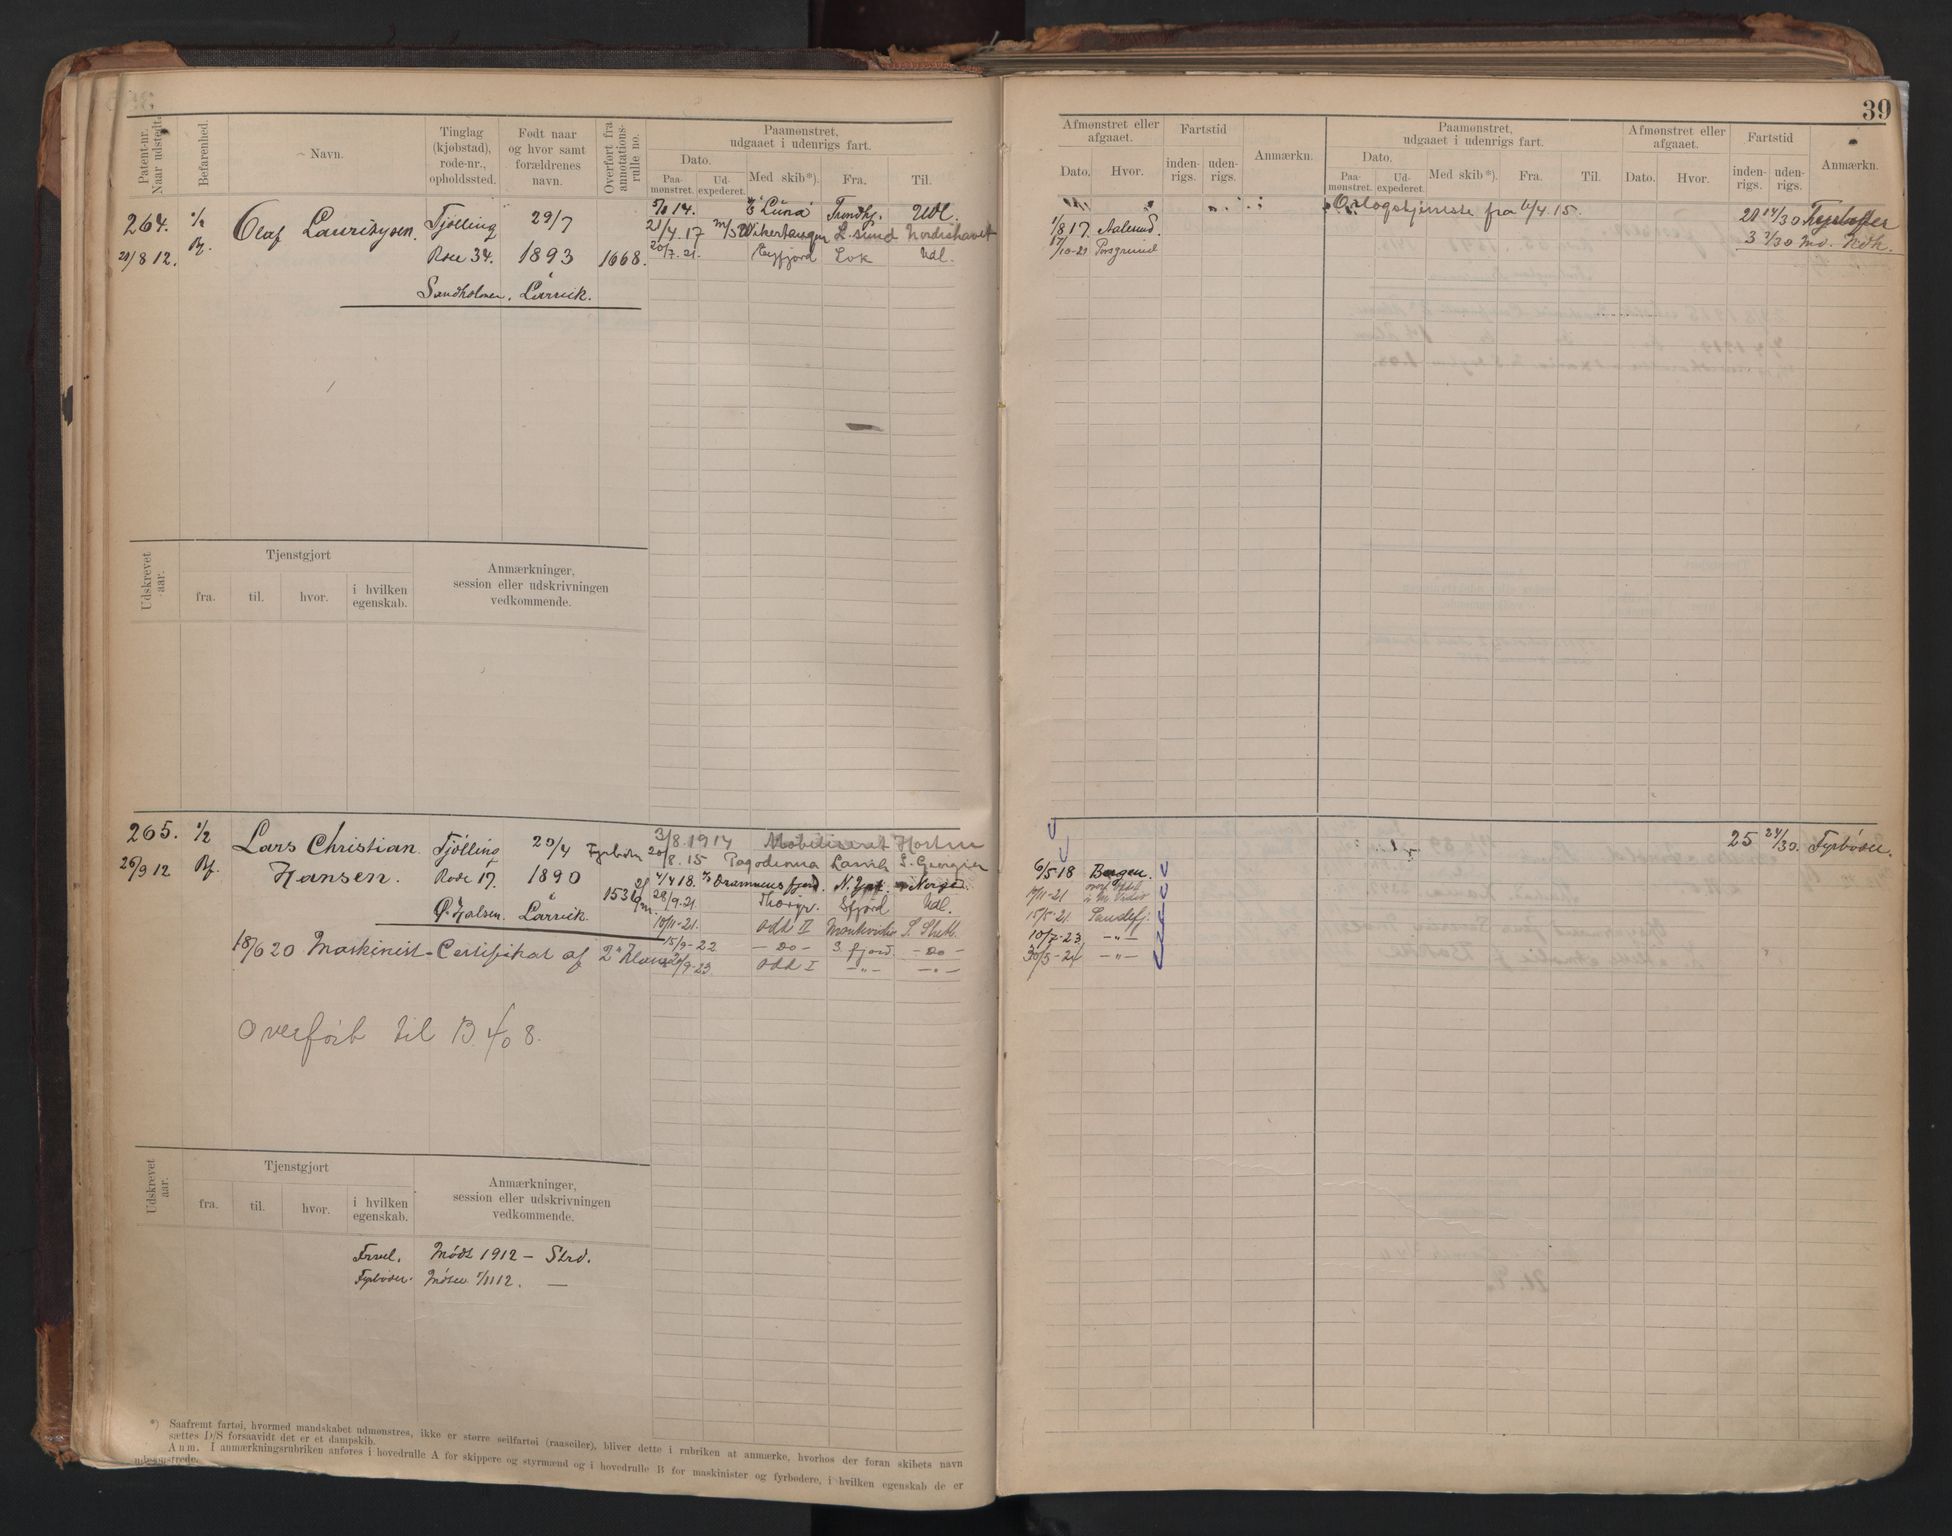 39
Patent-nr. Naar udstedt.
Befarenhed.
Navn.
Tinglag (kjøbstad), rode-nr., opholdssted.
Født naar og hvor samt forældrenes navn.
Overført fra annotations-rulle no.
Paamønstret, udgaaet i udenrigs fart.
Dato.
Paa-mønstret.
Ud-expederet.
Med skib*).
Fra.
Til.
Afmønstret eller afgaaet.
Dato.
Hvor.
Fartstid
inden-rigs.
uden-rigs.
Anmærkn.
Paamønstret, udgaaet i udenrigs fart.
Dato.
Paa-mønstret.
Ud-expederet.
Med skib*).
Fra.
Til.
Afmønstret eller afgaaet.
Dato.
Hvor.
Fartstid
inden-rigs.
uden-rigs.
Anmærkn.
264. 1/2 Olaf Lauritzsen. Tjølling 29/7
20/8 12. Bf. Rode 34. 1893 1668.
Sandholmen. Larvik.
14. Luna Trondhj. Udl.
21/4.17 L.sund Nordishavet
20/7.21. Eyfjord Udl.
1/8 17. Aalesund.
17/10-21 Porsgrund
Orlogstjeneste fra 4.15.
Udskrevet aar.
Tjenstgjort
fra.
til.
hvor.
i hvilken egenskab.
Anmærkninger, session eller udskrivningen vedkommende.
265. 1/2 Lars Christian Tjølling 20/4 Fyrbøter
26/9 12 Bf. Hansen. Rode 17. 1890
Ø. Halsen. Larvik. 1531
18/6 20 Maskinist-Certifikat af 2n Klasse
Overført til B. 408.
3/8.1914 Mobiliseret Horten
20/8.15 Pagodenna Larvik S. Georgien
4/4 18. Drammensfjord. N. York. Norge.
28/9.21. Thorgr. Sfjord Udl.
10/11-21. Odd II Montevideo S. Shetl.
15/9-22 - Do - S.fjord. - Do -
/9-23 Odd I - " - - " -
6/5 18 Bergen.
17/11-21
15/5-21. Sandefj.
10/7-23 - " -
30/5-24 - " -
25 24/30. Fyrbøder.
Udskrevet aar.
Tjenstgjort
fra.
til.
hvor.
i hvilken egenskab.
Anmærkninger, session eller udskrivningen vedkommende.
Mødt 1912 - Strd.
Fyrbøder. 1/11 12. —
*) Saafremt fartøi, hvormed mandskabet udmønstres, ikke er større seilfartøi (raaseiler), bliver dette i rubriken at anmærke, hvorhos der foran skibets navn
sættes D/S forsaavidt det er et dampskib.
Anm. I anmærkningsrubriken anføres i hovedrulle A for skippere og styrmænd og i hovedrulle B for maskinister og fyrbødere, i hvilken egenskab de er
udmønstrede.